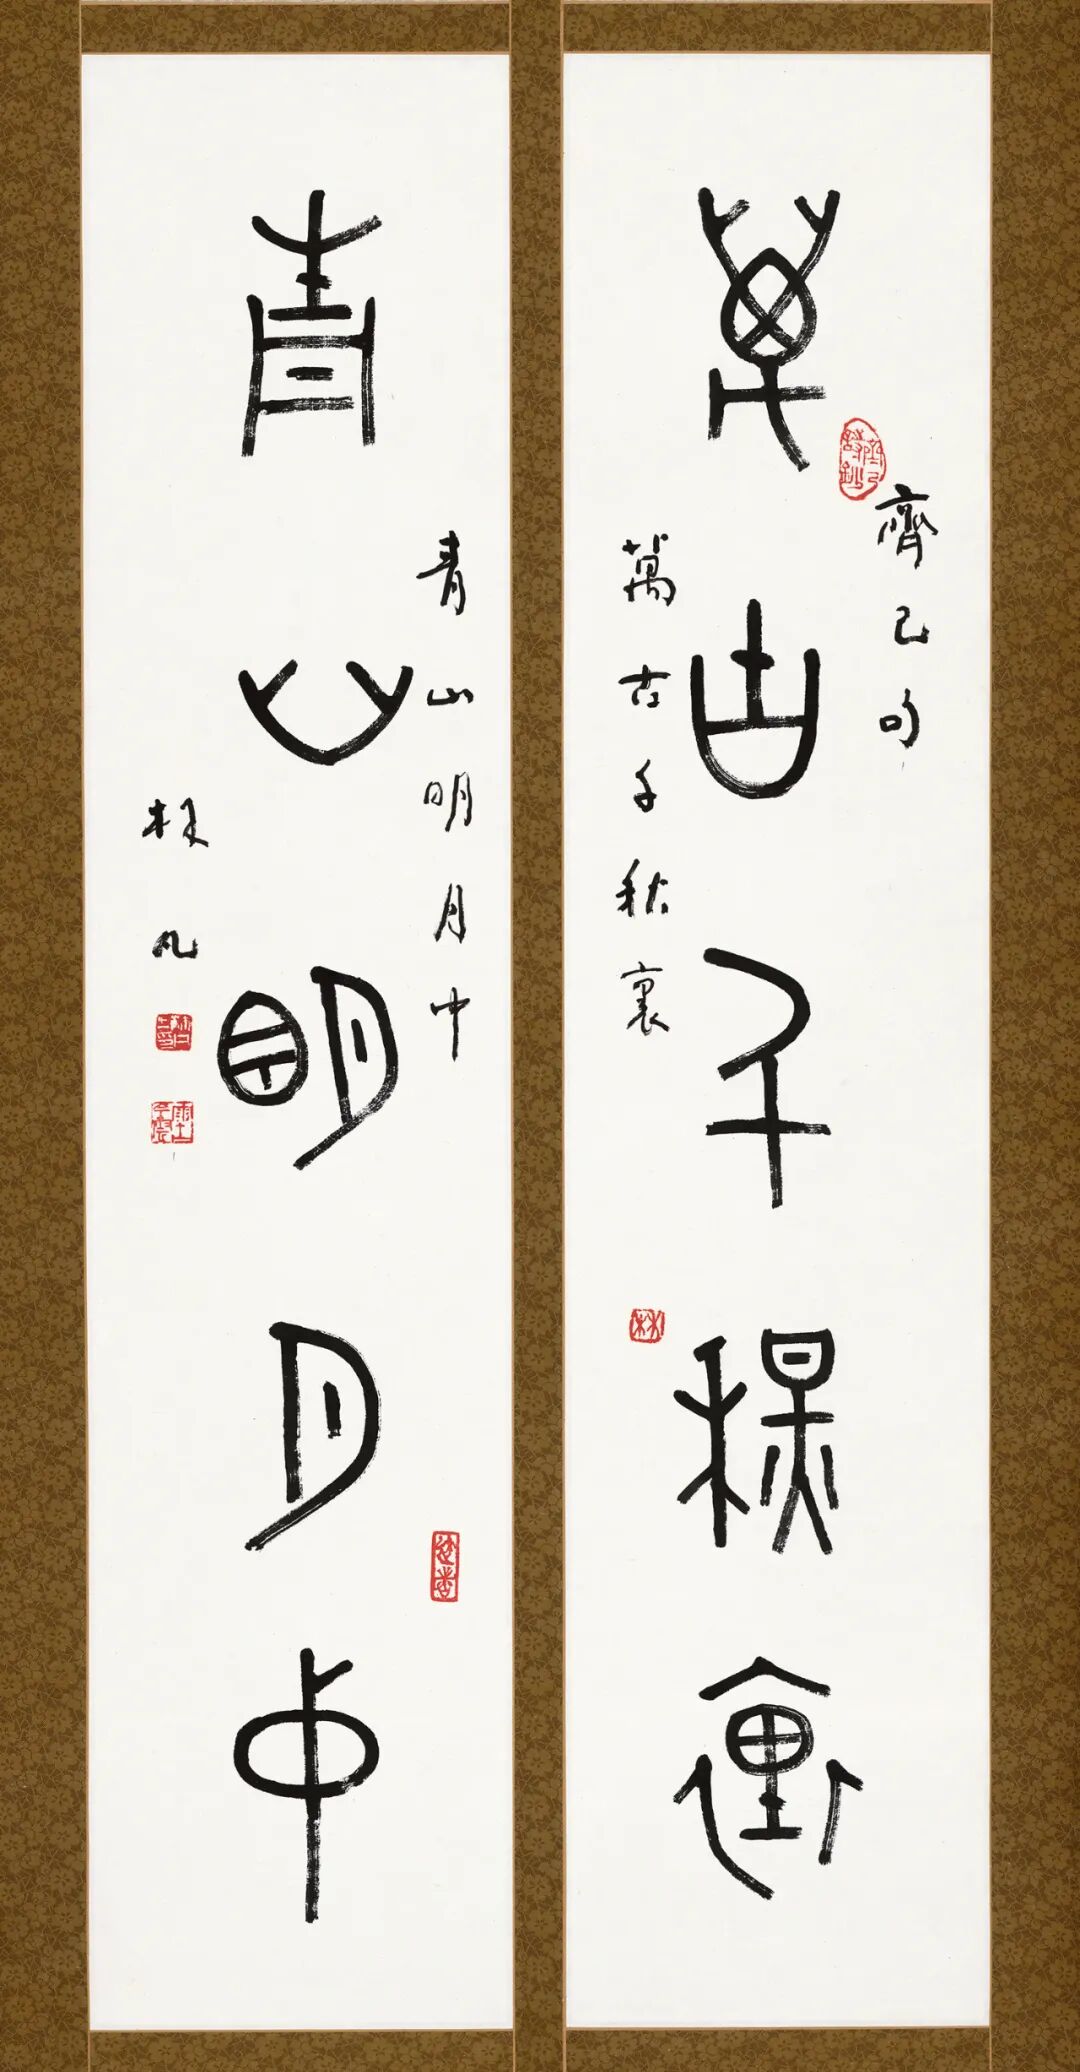 齊己句
萬古千秋裏
萬古千秋裏
青山明月中
青山明月中
林凡